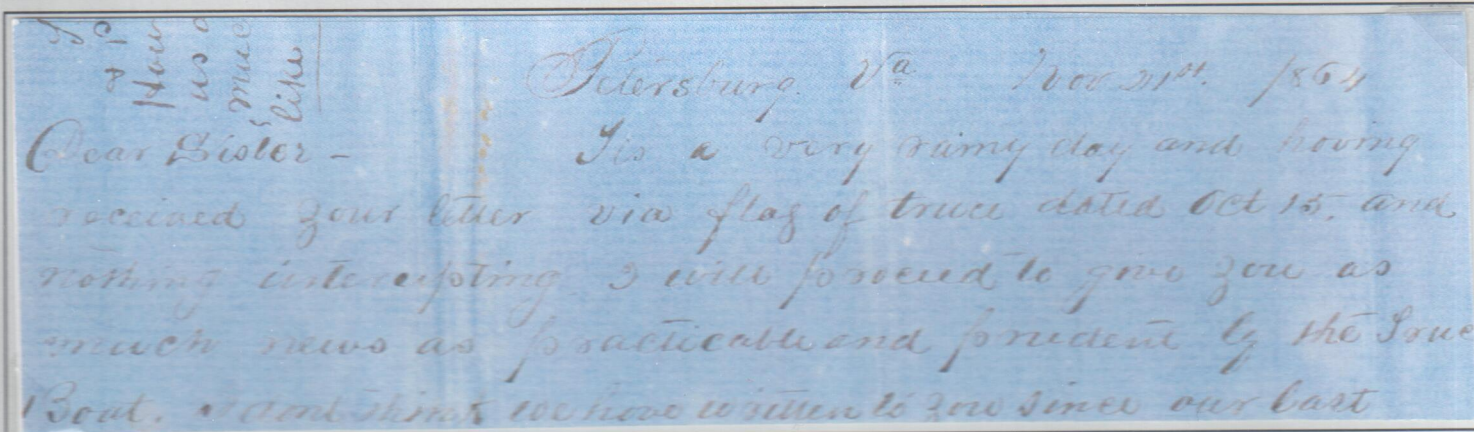 Petersburg. Va Nov 21st. 1864
Dear Sister - Its a very rainy day and having
received your letter via flag of truce dated Oct 15. and
nothing intercepting I will proceed to give you as
much news as practicable and prudent by the Truce
Boat. I dont think we have written to you since our last
How
us a
muc
like